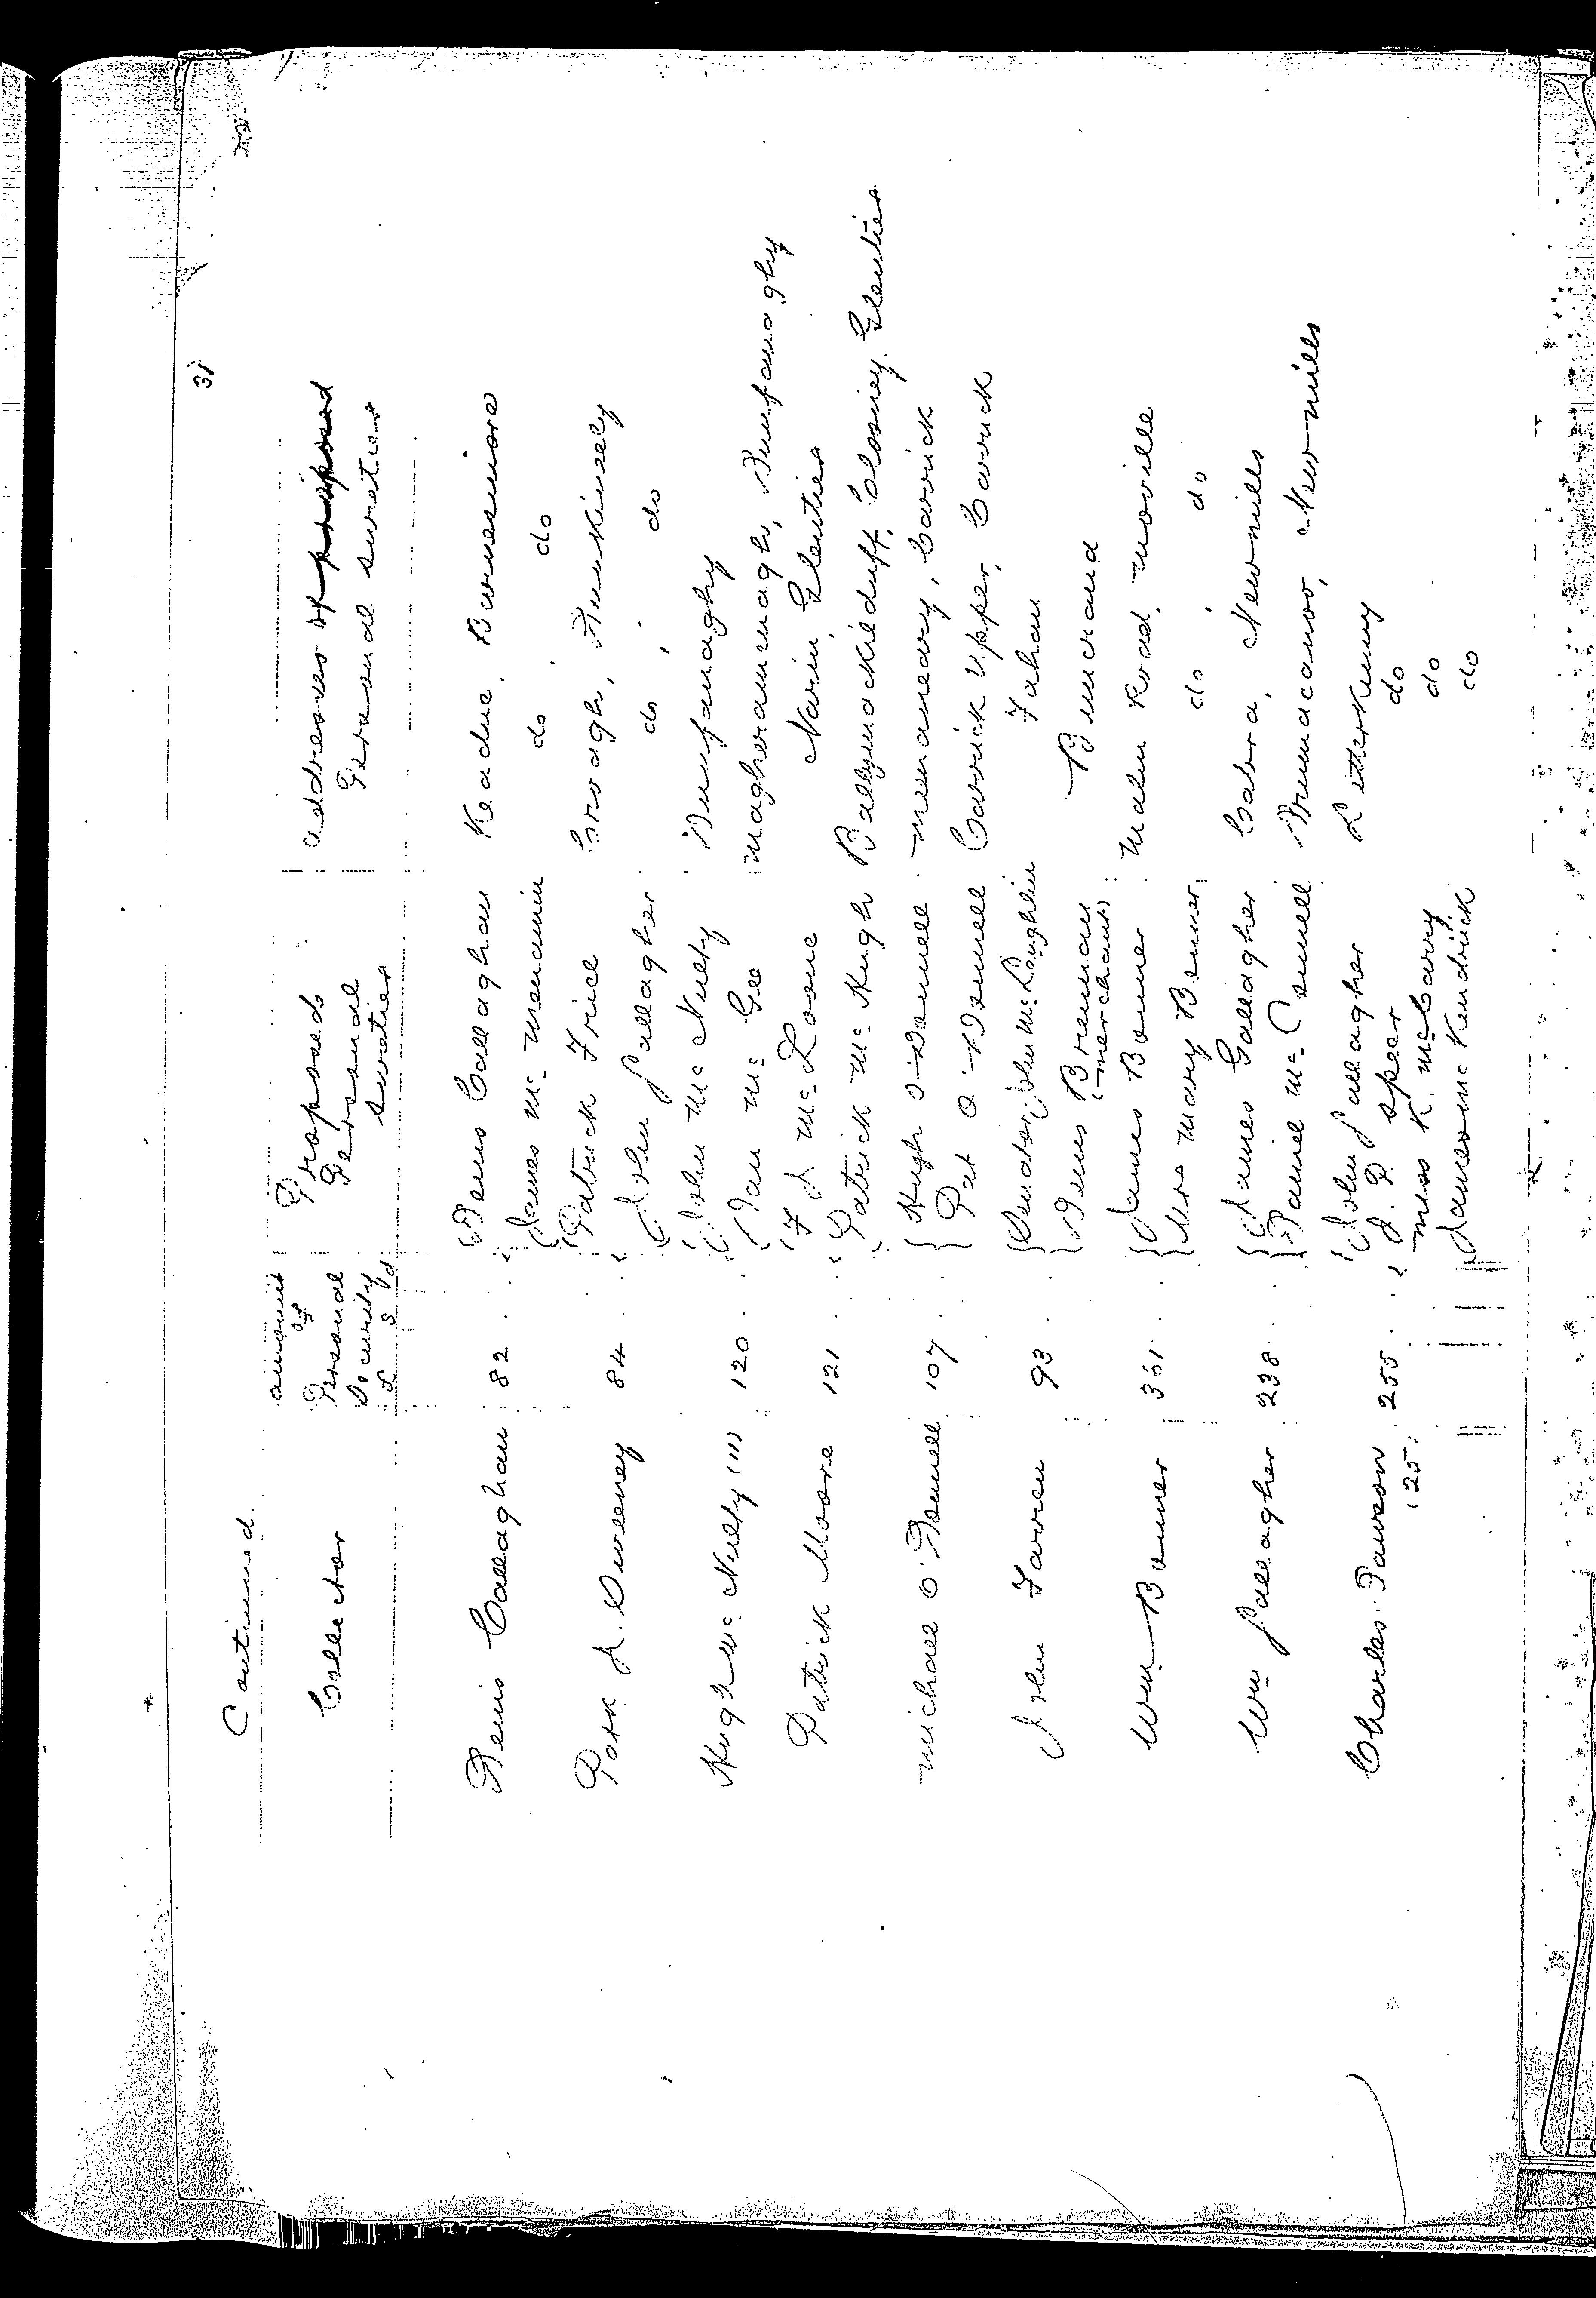 31
Continued.
Collector
amount of Personal Security £ s d
Proposed Personal sureties
addresses of proposed Personal sureties
Denis Callaghan 82 . . Denis Callaghan Keadue, Barnesmore
James McMenamin do do
Patk A. Sweeney 84 . . Patrick Friel Crroagh, Frunkinsely
John Gallagher do do
Hugh McNulty (11) 120 . . John McNulty Dunfanaghy
Dan McGee Magheramenagh, Dunfanaghy
Patrick Moore 121 . . F J McLoone Narin, Glenties
Patrick McHugh Ballymackilduff, Clooney, Glenties
Michael O'Donnell 107 . . Hugh O'Donnell Meenaneary, Carrick
Pat O'Donnell Carrick Upper, Carrick
John Farren 93 . . Senator John McLoughlin Fahan
Denis Brennan (merchant) Buncrana
Wm Bonner 351 . . James Bonner Malin Road, Moville
Mrs Mary Bonner do do
Wm Gallagher 238 . . James Gallagher Cabra, Newmills
Daniel McConnell Drumacanoo, Newmills
Charles Dawson 255 . . John Gallagher Letterkenny
(25) J. D. Speer do
Miss K. McCarry do
James McKendrick do